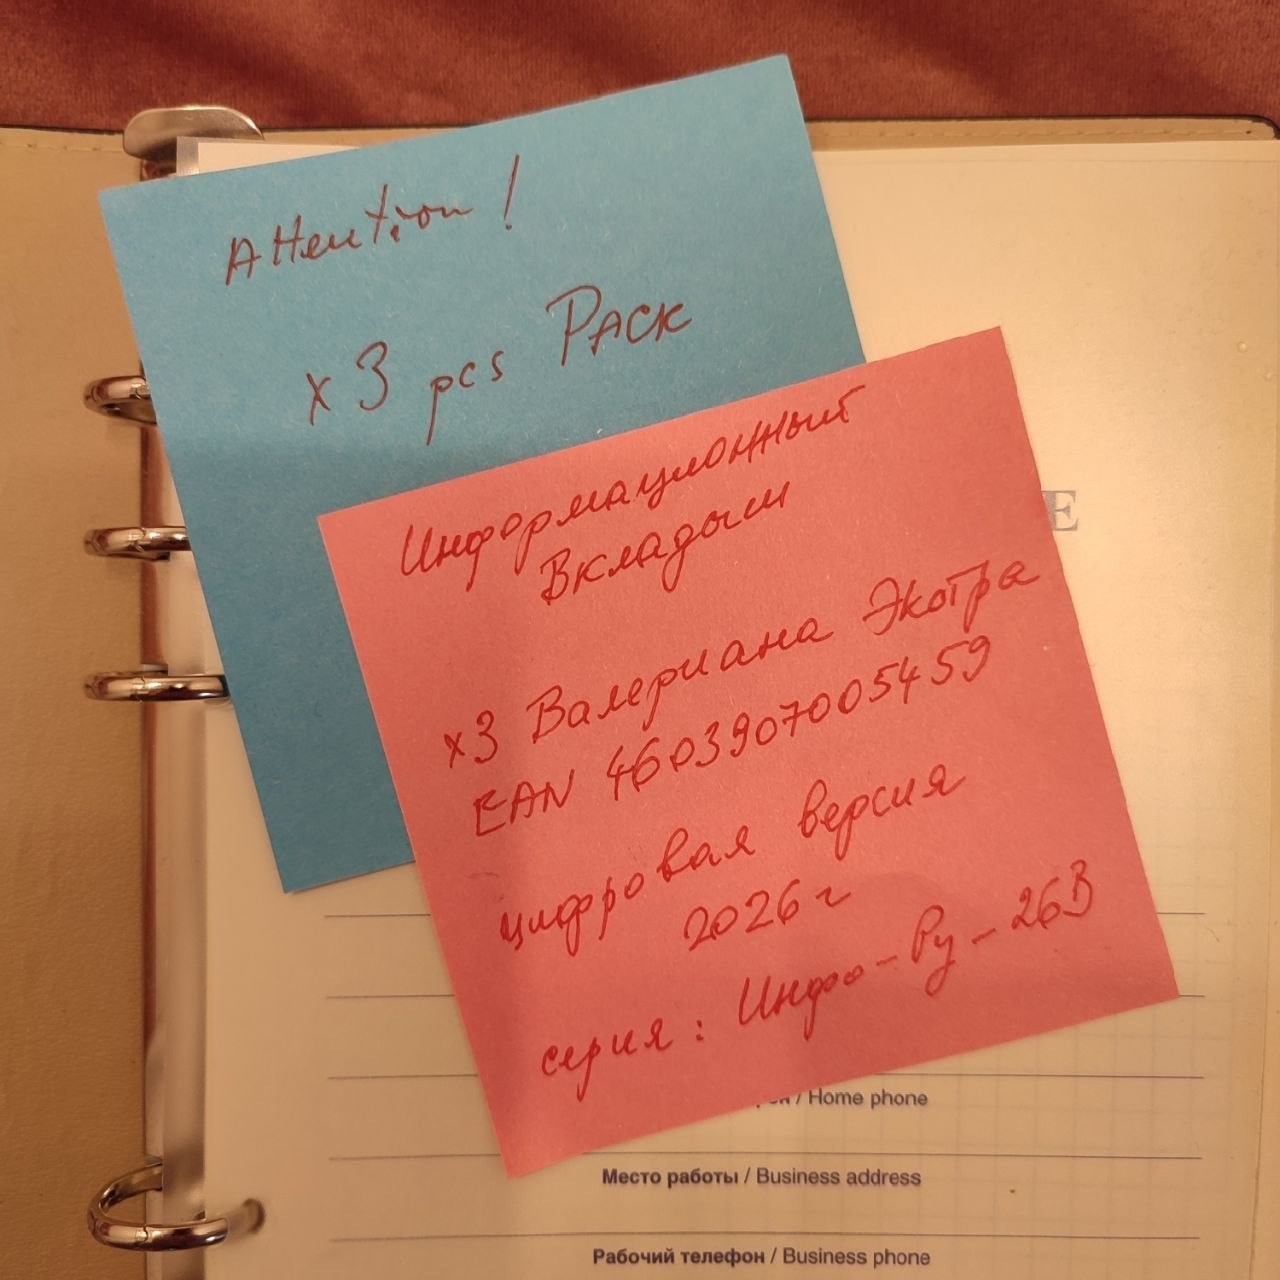 Attention!
x3 pcs PACK
Информационный
Вкладыш
x3 Валериана Экстра
EAN 4603907005459
цифровая версия
2026г
серия: Инфо-Ру-26В
E
/ Home phone
Место работы / Business address
Рабочий телефон / Business phone